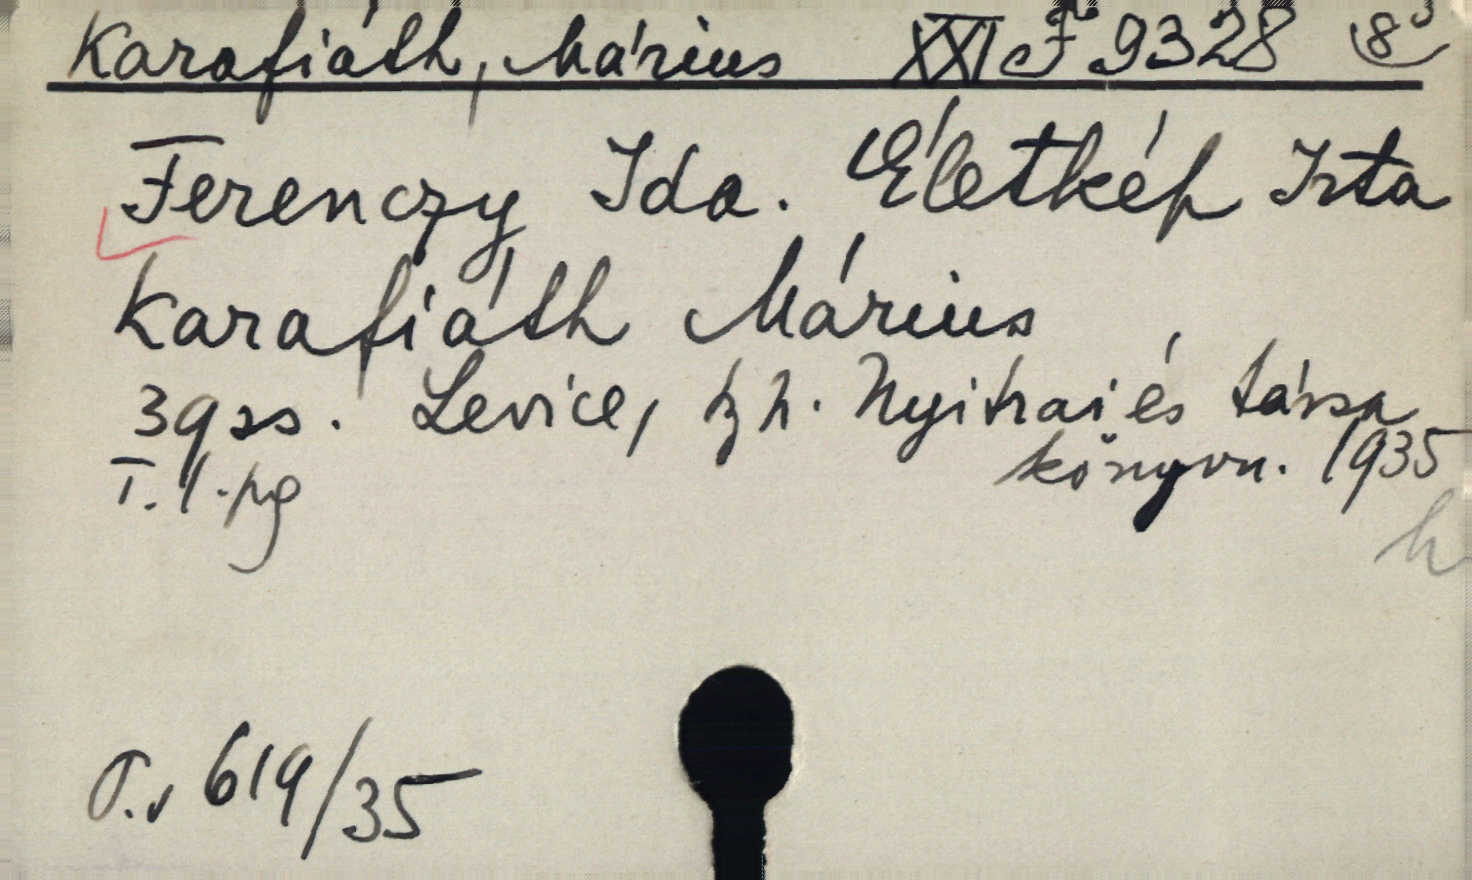 Karafiáth, Márius XXI F 9328 8°
Ferenczy Ida. Életkép Irta
Karafiáth Márius
39 ss. Levice, kh. Nyitrai és társa
könyvn. 1935
T. 1. pg
h
619/35